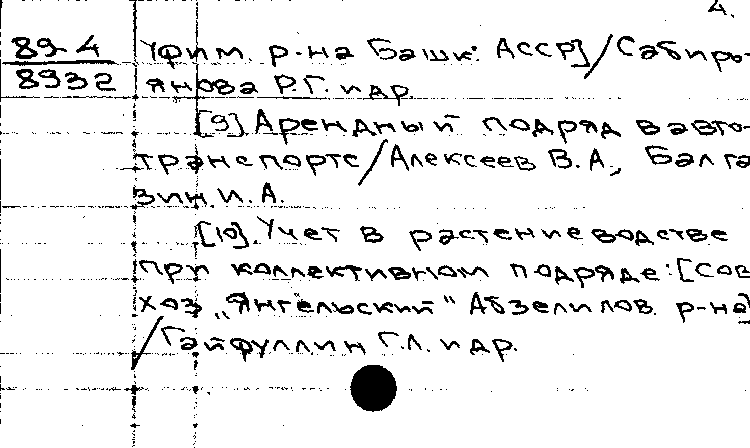 4.
89-4
8932
Уфим. р-на Башк. АССР]/Сабиро-
янова Р.Г. и др.
[9] Арендный подряд в авто-
транспорте/Алексеев В.А., Балга
зин И.А.
[10]. Учет в растениеводстве
при коллективном подряде: [Сов
хоз „Янгельский" Абзелилов. р-на]
/Гайфуллин Г.Л. и др.